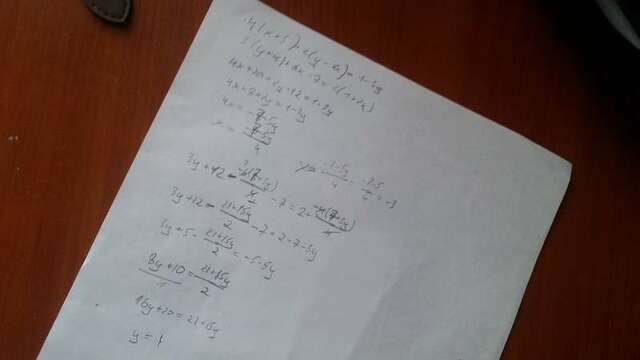 4(x+5)+2(y-6)=1-3y
3(y+4)+6x-7=2(1+2x)
4x+20+2y-12=1-3y
4x+8+2y=1-3y
4x=-7-5y
x=\frac{-7-5y}{4} y=\frac{-7-5y}{4}=\frac{-7-5}{4}=-3
3y+12-\frac{3(7+5y)}{2}-7=2+\frac{-4(7+5y)}{4}
3y+12-\frac{21+15y}{2}-7=2-7-5y
3y+5-\frac{21+15y}{2}=-5-5y
\frac{8y+10}{1}=\frac{21+15y}{2}
16y+20=21+15y
y=1